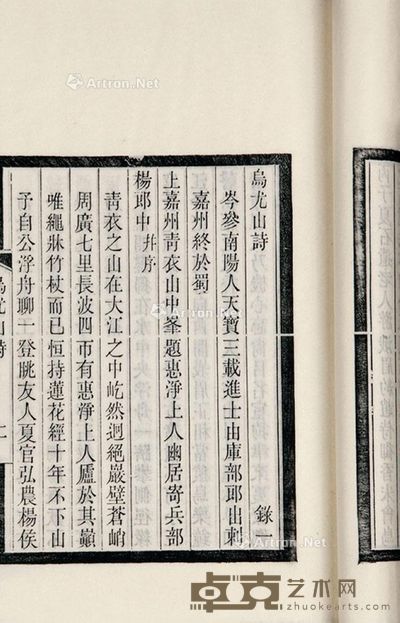 烏尤山詩 錄
岑參南陽人天寶三載進士由庫部郎出刺
嘉州終於蜀
上嘉州青衣山中峯題惠淨上人幽居寄兵部
楊郎中 幷序
青衣之山在大江之中屹然迥絕巖壁蒼峭
周廣七里長波四帀有惠淨上人廬於其巔
唯繩牀竹杖而已恒持蓮花經十年不下山
予自公浮舟聊一登眺友人夏官弘農楊侯
烏尤山詩
Artron.Net
Artron.Net
卓克艺术网
www.zhuokearts.com